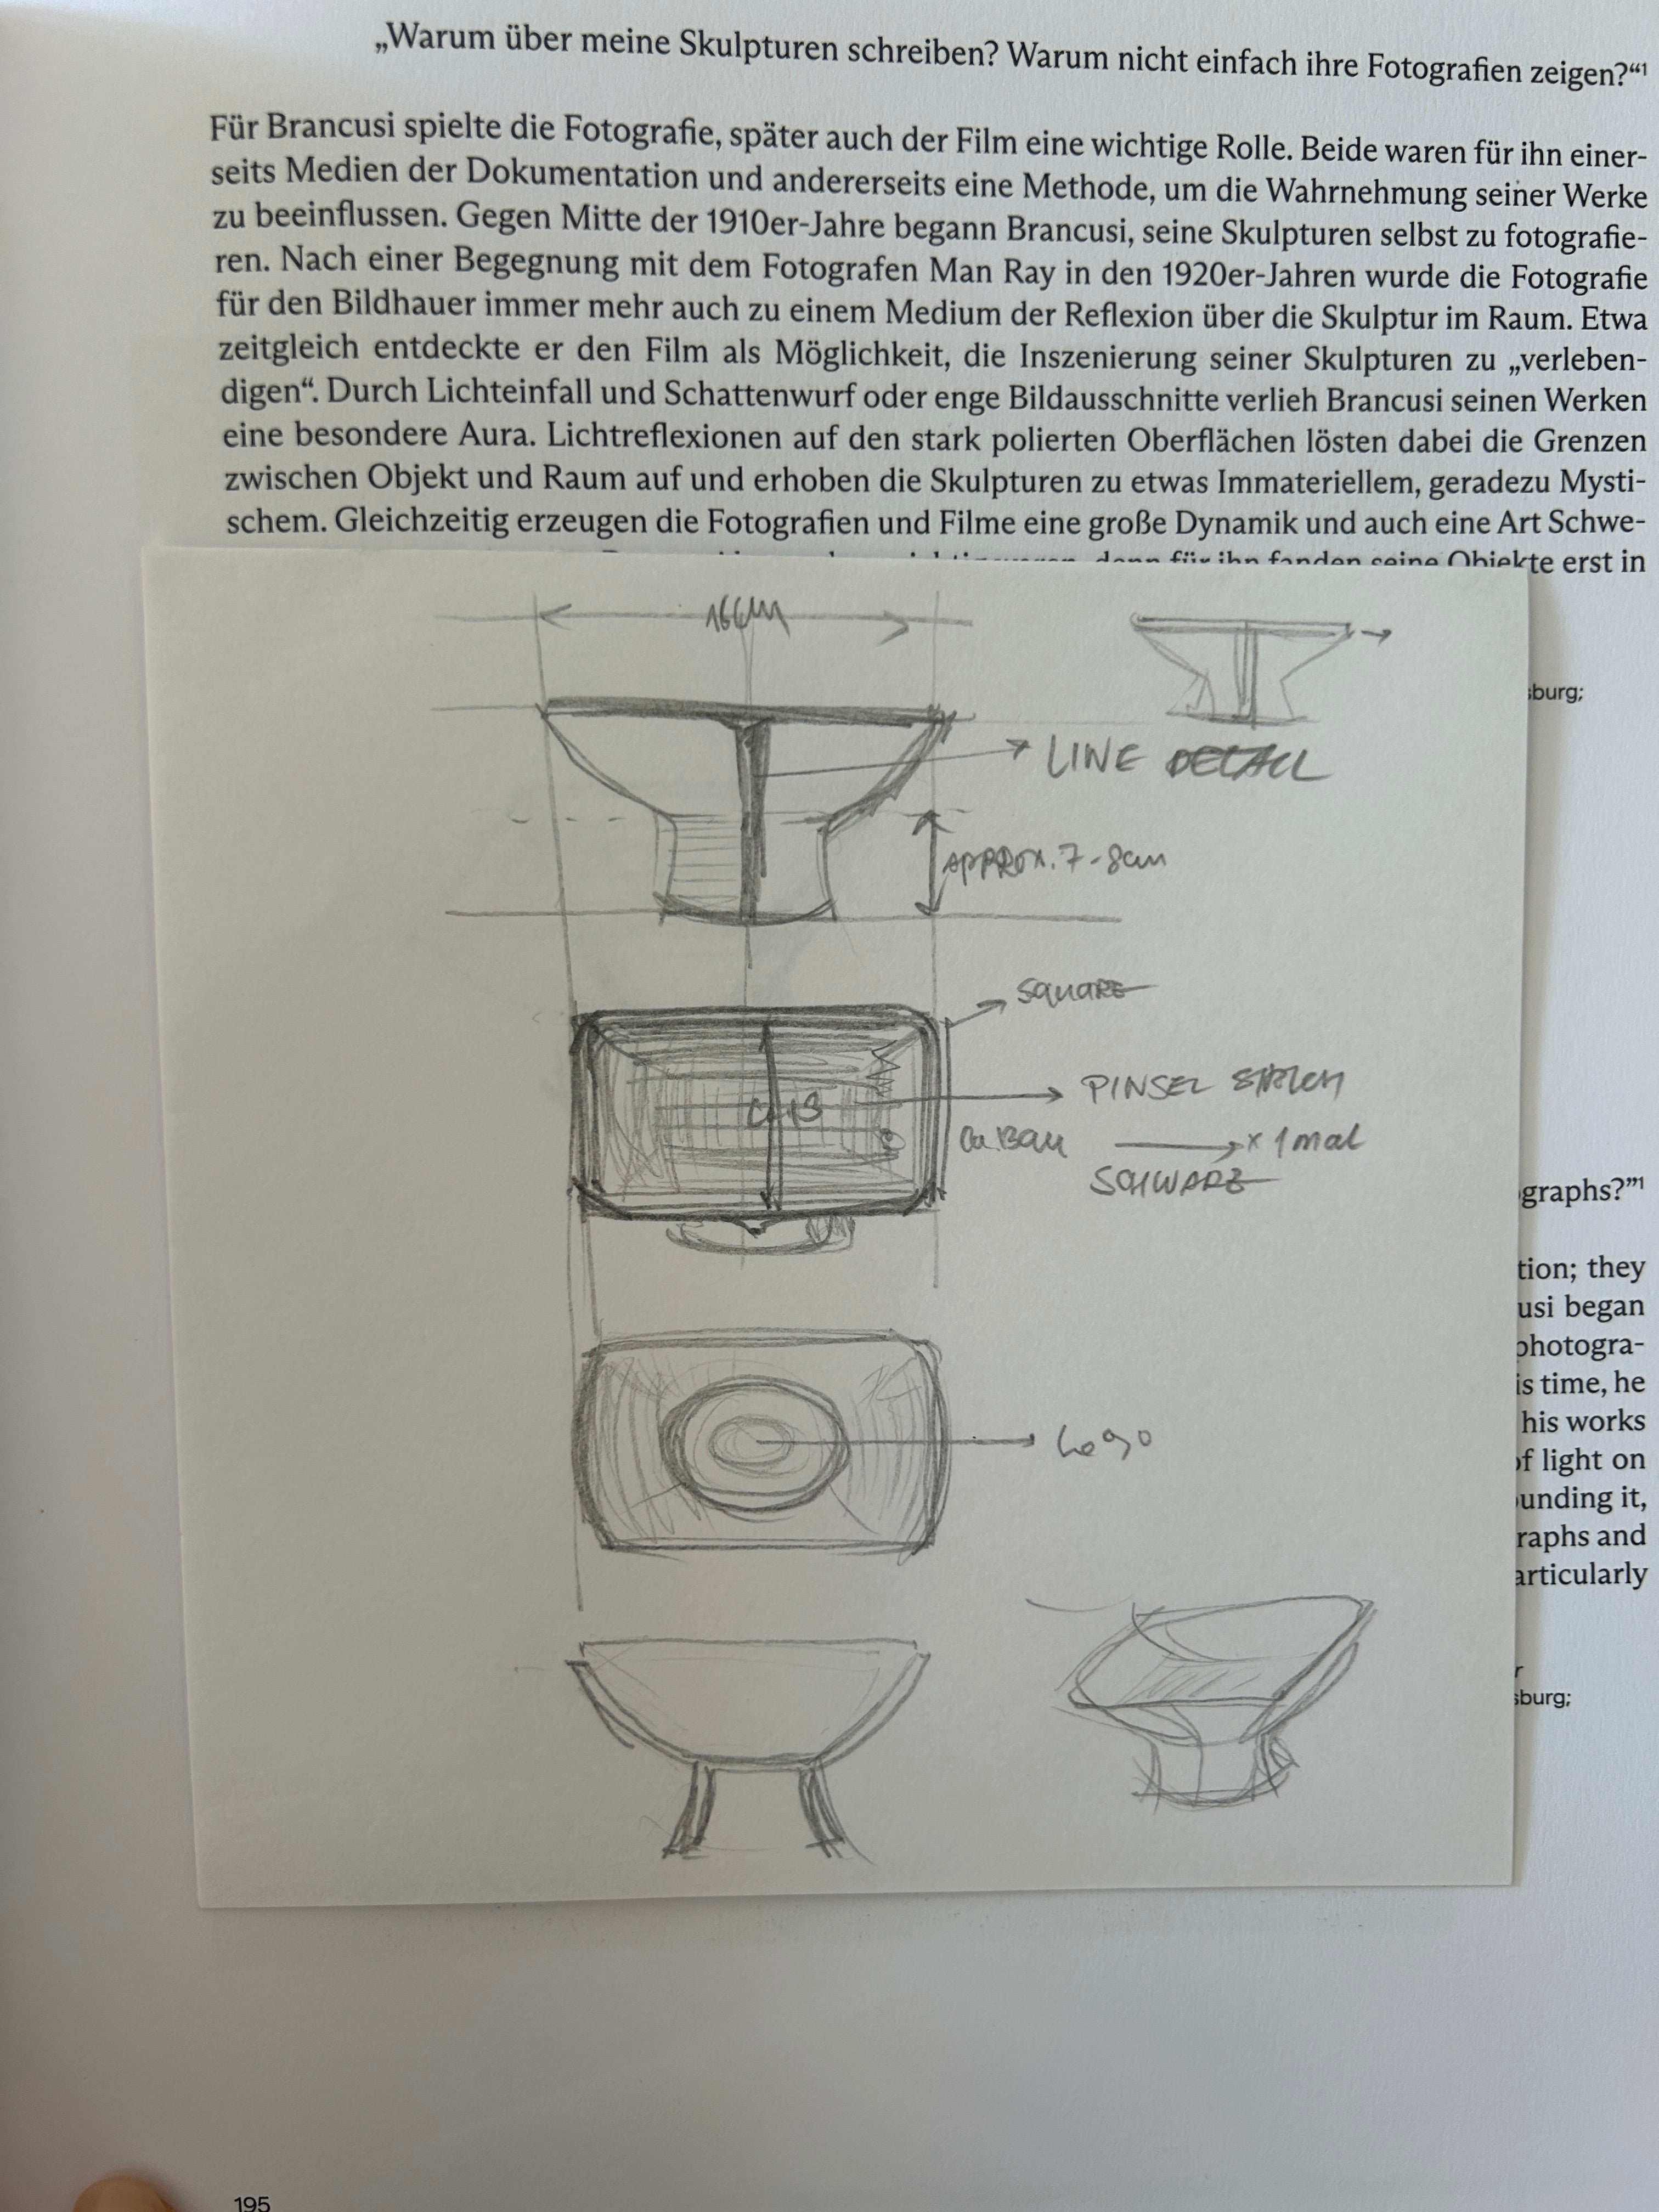 „Warum über meine Skulpturen schreiben? Warum nicht einfach ihre Fotografien zeigen?“1
Für Brancusi spielte die Fotografie, später auch der Film eine wichtige Rolle. Beide waren für ihn einer-
seits Medien der Dokumentation und andererseits eine Methode, um die Wahrnehmung seiner Werke
zu beeinflussen. Gegen Mitte der 1910er-Jahre begann Brancusi, seine Skulpturen selbst zu fotografie-
ren. Nach einer Begegnung mit dem Fotografen Man Ray in den 1920er-Jahren wurde die Fotografie
für den Bildhauer immer mehr auch zu einem Medium der Reflexion über die Skulptur im Raum. Etwa
zeitgleich entdeckte er den Film als Möglichkeit, die Inszenierung seiner Skulpturen zu „verleben-
digen“. Durch Lichteinfall und Schattenwurf oder enge Bildausschnitte verlieh Brancusi seinen Werken
eine besondere Aura. Lichtreflexionen auf den stark polierten Oberflächen lösten dabei die Grenzen
zwischen Objekt und Raum auf und erhoben die Skulpturen zu etwas Immateriellem, geradezu Mysti-
schem. Gleichzeitig erzeugen die Fotografien und Filme eine große Dynamik und auch eine Art Schwe-
denn für ihn fanden seine Objekte erst in
16cm
sburg;
LINE DETAIL
APPROX. 7-8cm
SQUARE
PINSEL STRICH
x 1 mal
SCHWARZ
graphs?”1
tion; they
usi began
photogra-
is time, he
his works
of light on
unding it,
raphs and
articularly
Logo
r
sburg;
195